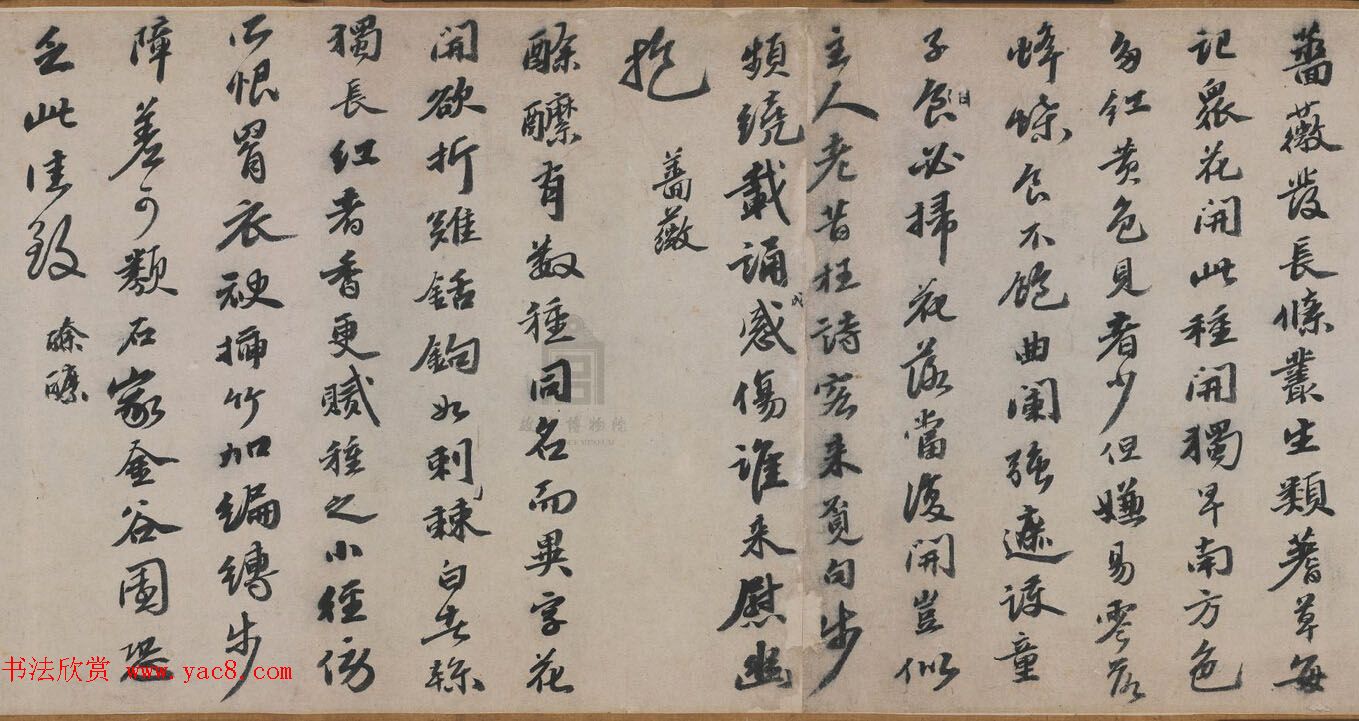 薔薇發長條叢生類蓍草每
記衆花開此種開獨早南方色
多紅黄色見者少但嫌易零落
蜂蝶食不飽曲闌強遮護童
子食日必掃花落當復開豈似
主人老昔枉詩客来覓句步
頻繞載誦感傷誰来慰幽
抱
薔薇
酴醿有数種同名而異字花
開欲折難銛鉤如刺棘白者雖
獨長紅者香更貳種之小徑傍
不恨罥衣裓插竹加編縛步
障差可類石家金谷園恐
乏此佳致
酴醿
书法欣赏 www.yac8.com